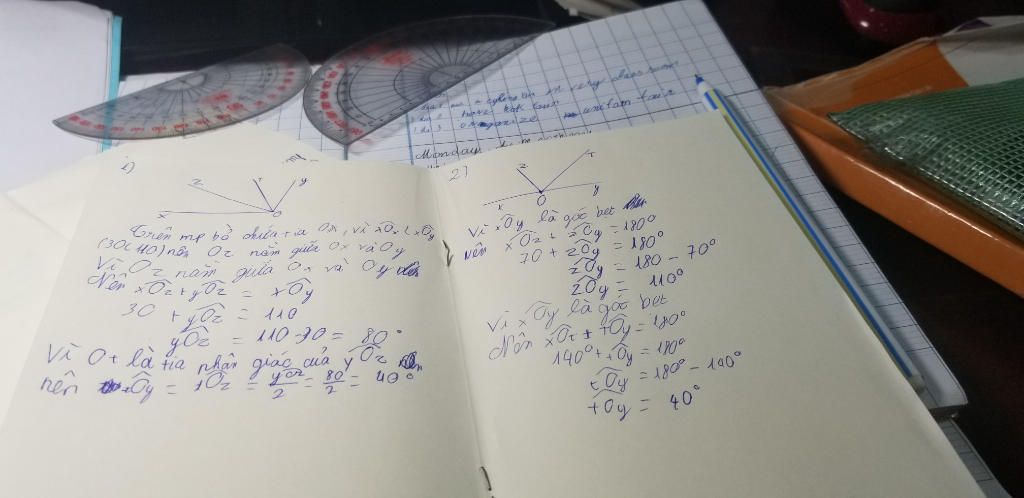 1)
z
t
y
x
O
Trên mp bờ chứa tia Ox, vì xOz < xOy
(30<110) nên Oz nằm giữa Ox và Oy
Vì Oz nằm giữa Ox và Oy
Nên xOz + yOz = xOy
30 + yOz = 110
yOz = 110 - 30 = 80°
Vì Ot là tia phân giác của yOz
nên tOy = tOz = yOz/2 = 80/2 = 40°
2)
z
t
x
O
y
Vì xOy là góc bẹt
nên xOz + zOy = 180°
70 + zOy = 180°
zOy = 180 - 70°
zOy = 110°
Vì xOy là góc bet
Nên xOt + tOy = 180°
140° + tOy = 180°
tOy = 180° - 140°
tOy = 40°
organize
Monday